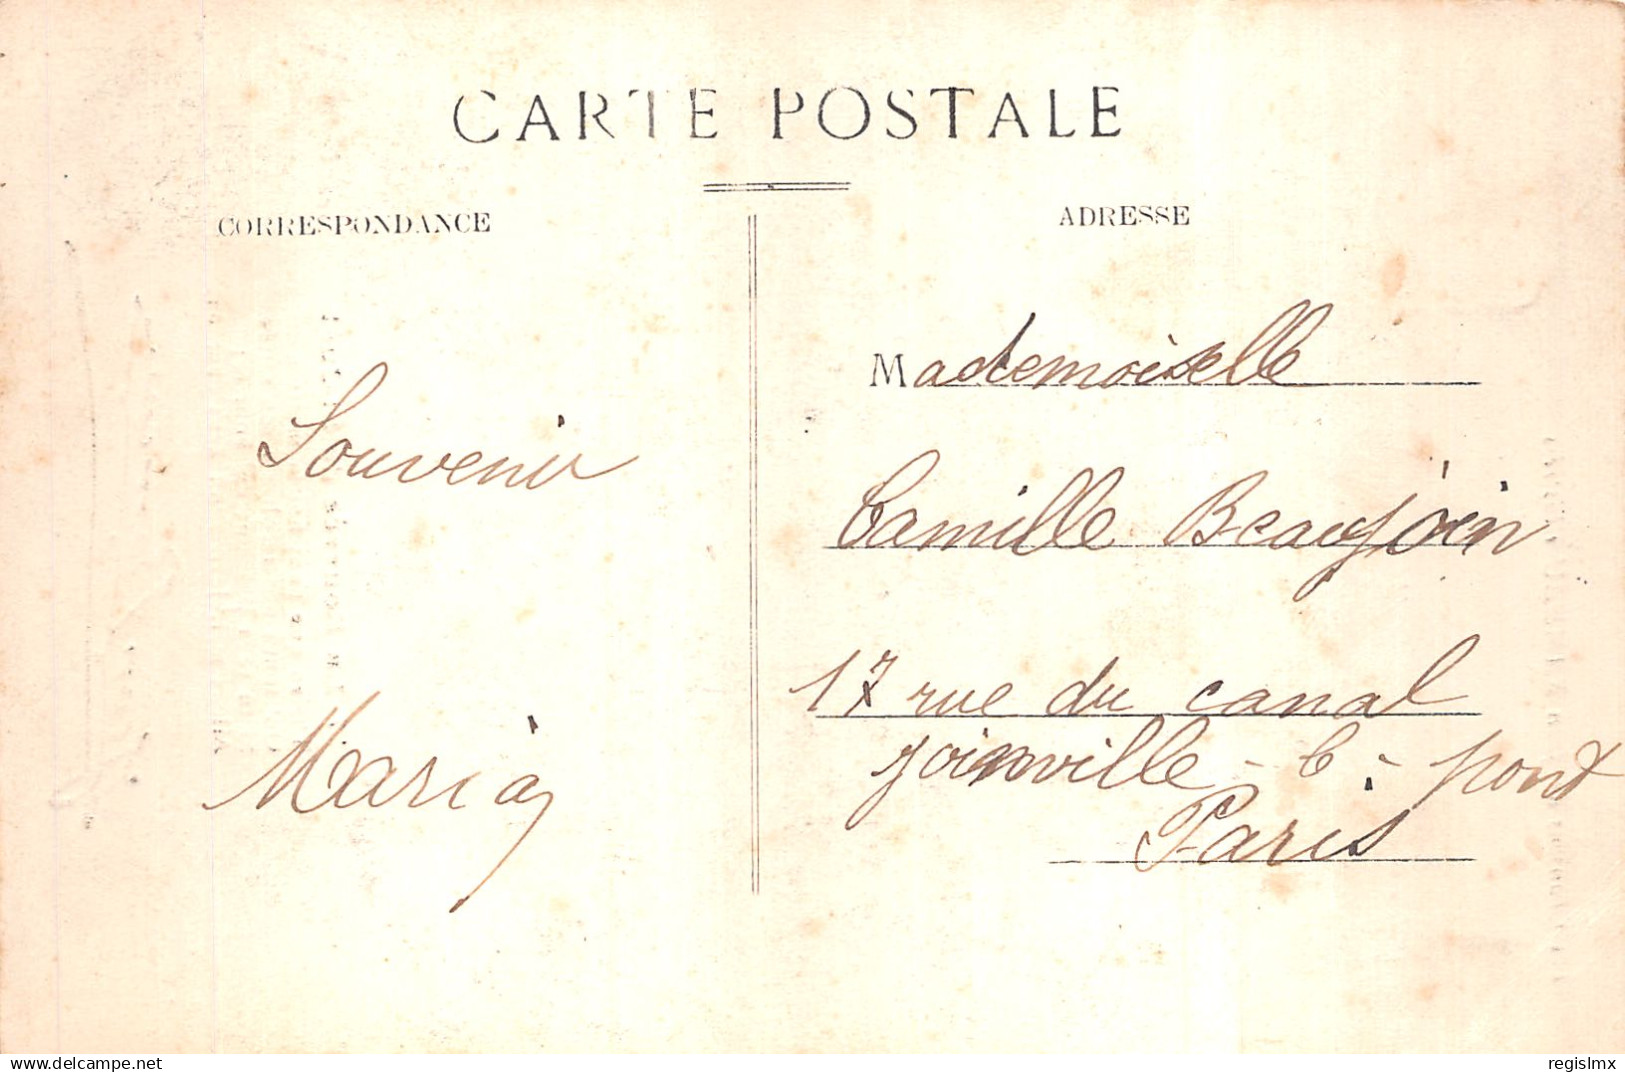 CARTE POSTALE
CORRESPONDANCE
ADRESSE
Souvenir
Maria
Mademoiselle
Camille Beaujoin
17 rue du canal
joinville - l - pont
Paris
www.delcampe.net
regislmx